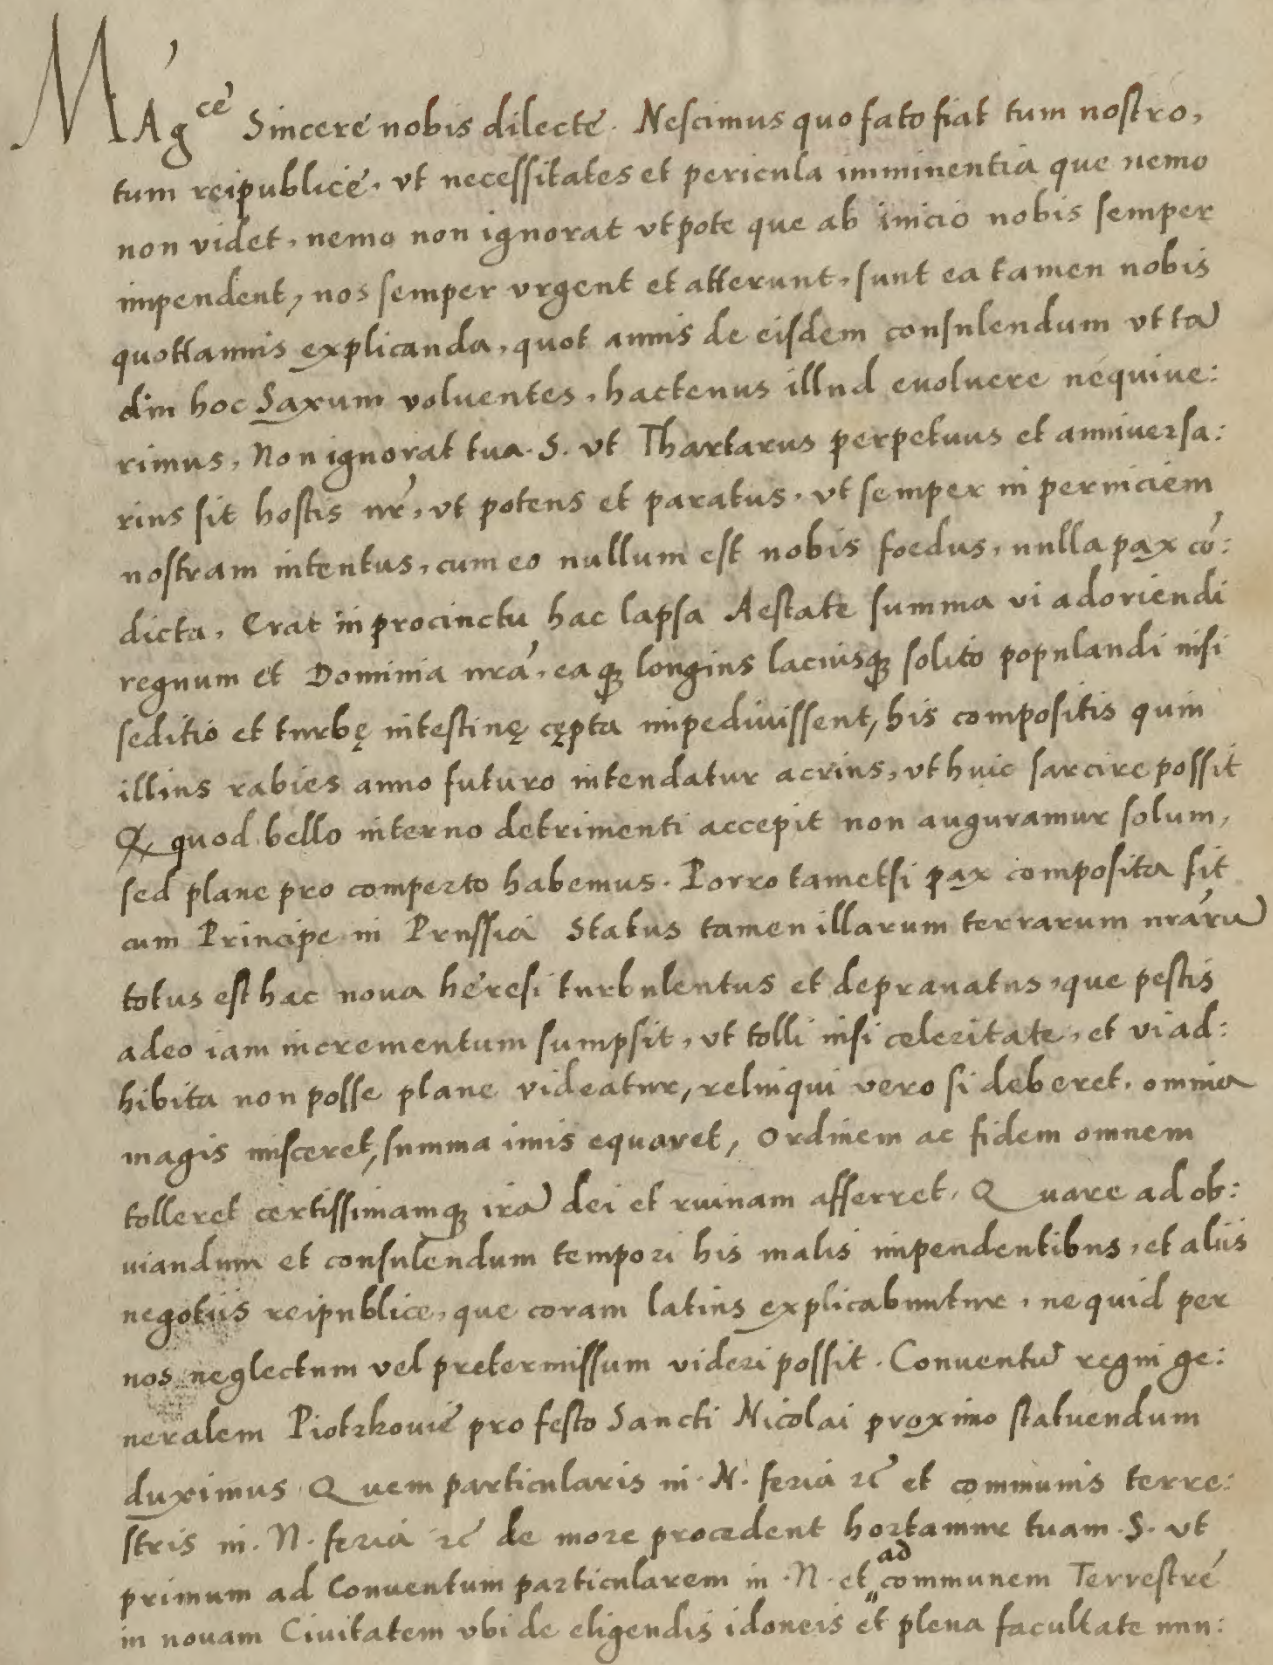 Mag^ce Sincere nobis dilecte. Nescimus quo fato fiat tum nostro,
tum reipublice, vt necessitates et pericula imminentia que nemo
non videt, nemo non ignorat vtpote que ab inicio nobis semper
impendent, nos semper vrgent et atterunt, sunt ea tamen nobis
quottannis explicanda, quot annis de eisdem consulendum vt tā
diu hoc Saxum voluentes, hactenus illud euoluere nequiue:
rimus, Non ignorat tua. S. vt Thartarus perpetuus et anniuersa:
rius sit hostis nr̄, vt potens et paratus, vt semper in perniciem
nostram intentus, cum eo nullum est nobis foedus, nulla pax cō:
dicta, Erat in procinctu hac lapsa Aestate summa vi adoriendi
regnum et Dominia nrā, eaq₃ longius laciusq₃ solito populandi nisi
seditio et turbę intestinę cępta impediuissent, his compositis quin
illius rabies anno futuro intendatur acrius, vt huic sarcire possit
quod bello interno detrimenti accepit non auguramur solum,
sed plane pro comperto habemus. Porro tametsi pax composita sit
cum Principe in Prussia Status tamen illarum terrarum nrārū
totus est hac noua heresi turbulentus et deprauatus, que pestis
adeo iam incrementum sumpsit, vt tolli nisi celeritate, et vi ad:
hibita non posse plane videatur, relinqui vero si deberet, omnia
magis misceret, summa imis equaret, Ordinem ac fidem omnem
tolleret certissimamq₃ irā dei et ruinam afferret, Quare ad ob:
uiandum et consulendum tempori his malis impendentibus, et aliis
negotiis reipublice, que coram latius explicabuntur, ne quid per
nos neglectum vel pretermissum videri possit. Conuentū regni ge:
neralem Piotrkouie pro festo Sancti Nicolai proximo statuendum
duximus Quem particularis in .N. feria ꝛc̄ et communis terre:
stris in .N. feria ꝛc̄ de more procedent hortamur tuam .S. vt
primum ad Conuentum particularem in .N. et ad communem Terrestrē
in nouam Ciuitatem vbi de eligendis idoneis et plena facultate mun: